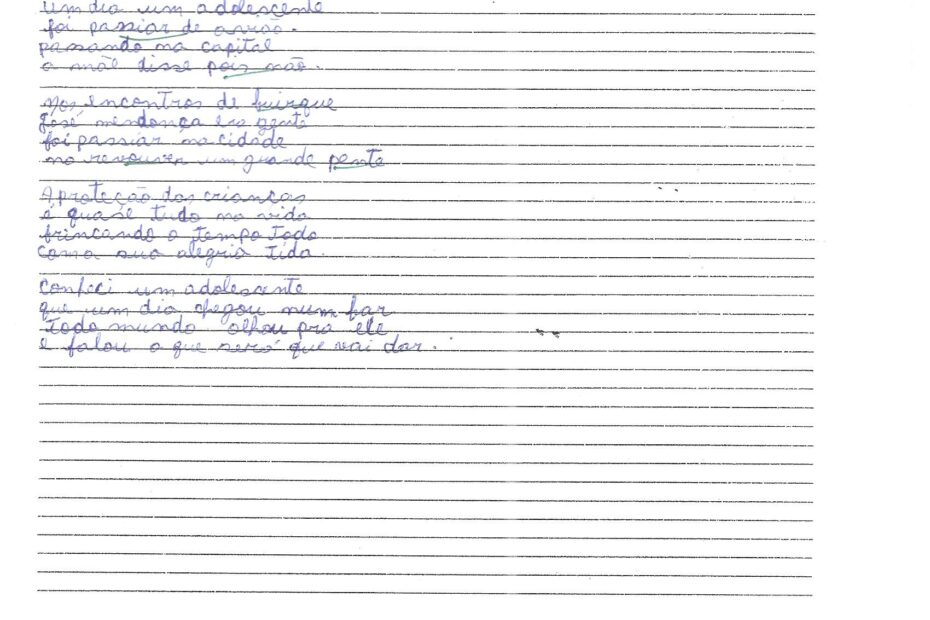 Um dia um adolescente
foi passiar de avião.
passando na capital
a mãe disse pois não.
Nos encontros de
José mendonça era gente
foi passiar na cidade
no um grande pente
A proteção das crianças
é quase tudo na vida
brincando o tempo todo
coma sua alegria tida.
Conheci um adolescente
que um dia chegou num bar
todo mundo olhou pra ele
e falou o que será que vai dar.